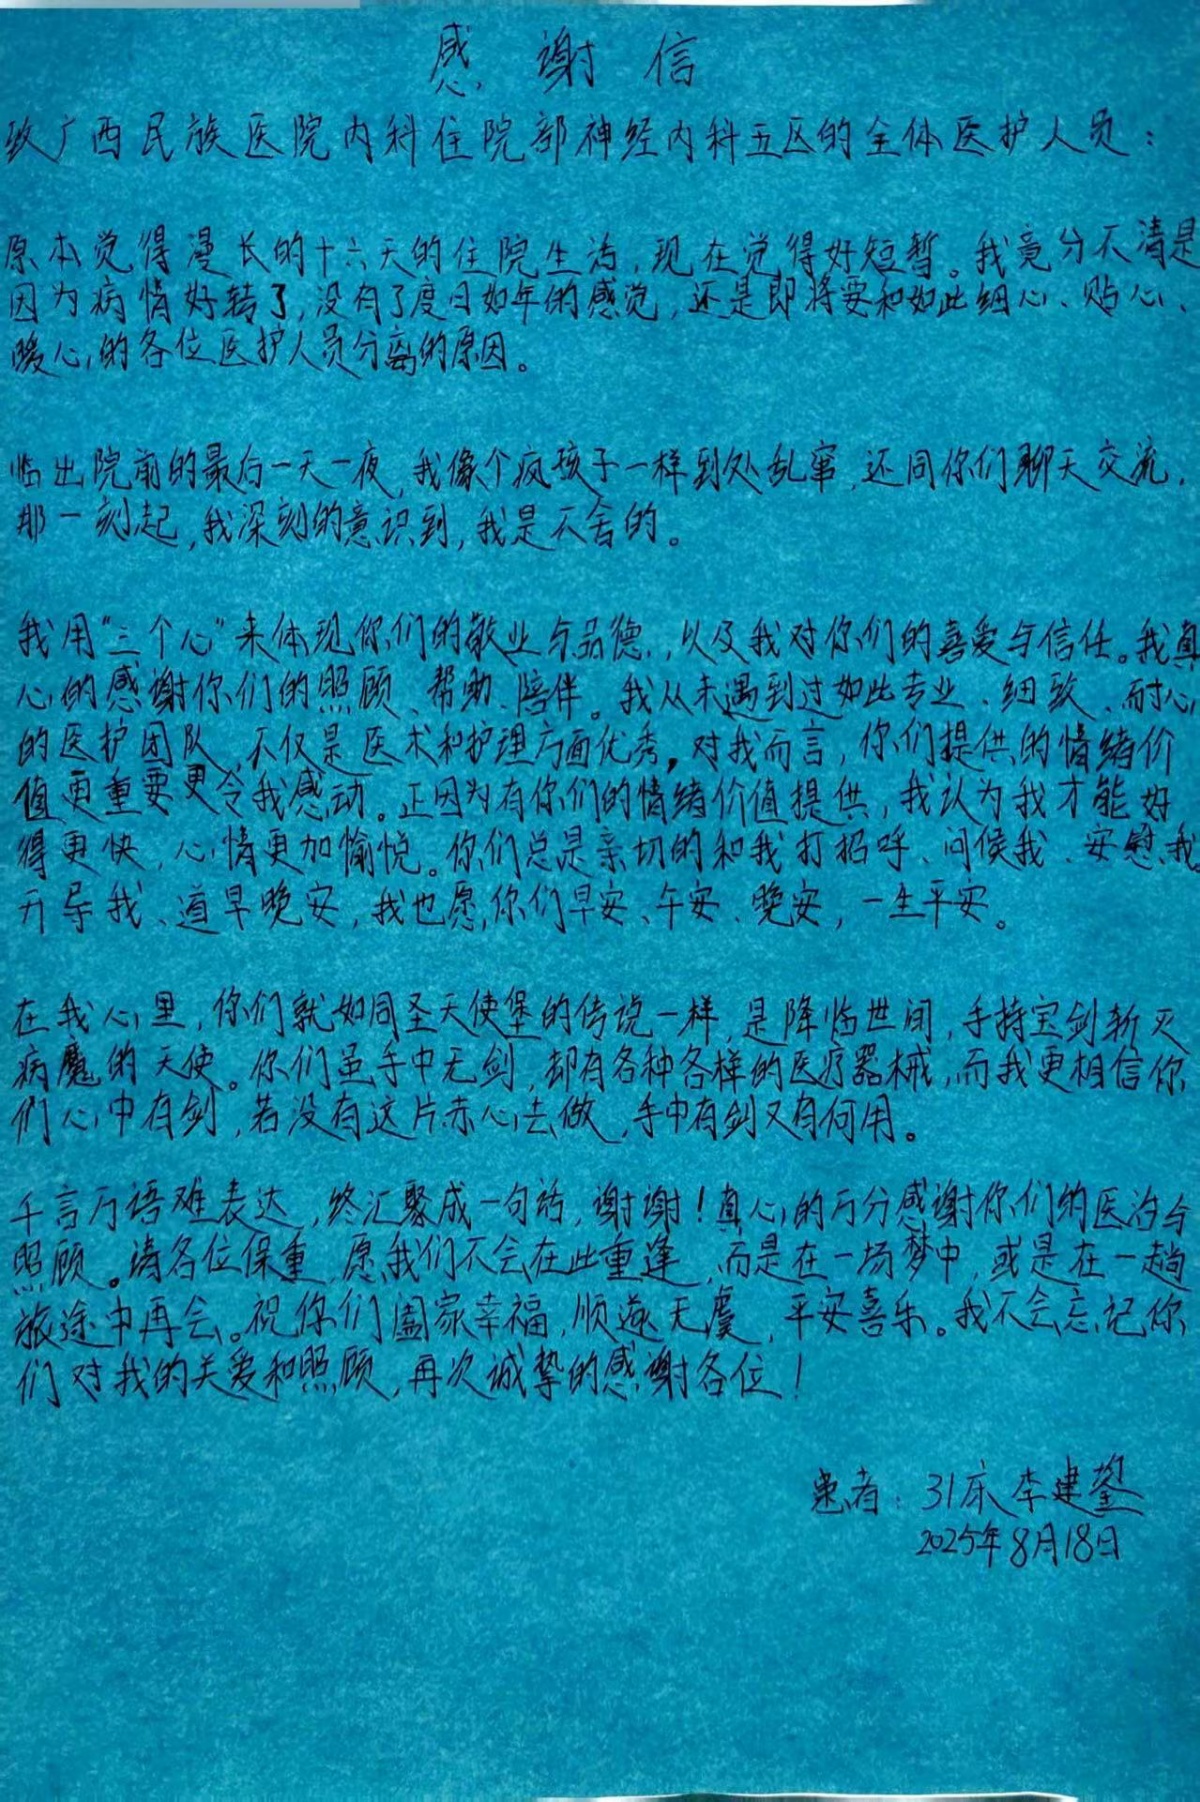 感谢信
致广西民族医院内科住院部神经内科五区的全体医护人员：
原本觉得漫长的十六天的住院生活，现在觉得好短暂。我竟分不清是
因为病情好转了，没有了度日如年的感觉，还是即将要和如此细心、贴心、
暖心的各位医护人员分离的原因。
临出院前的最后一天一夜，我像个疯孩子一样到处乱窜，还同你们聊天交流，
那一刻起，我深刻的意识到，我是不舍的。
我用“三个心”来体现你们的敬业与品德，以及我对你们的喜爱与信任。我真
心的感谢你们的照顾、帮助、陪伴。我从未遇到过如此专业、细致、耐心
的医护团队，不仅是医术和护理方面优秀，对我而言，你们提供的情绪价
值更重要更令我感动。正因为有你们的情绪价值提供，我认为我才能好
得更快，心情更加愉悦。你们总是亲切的和我打招呼、问候我、安慰我、
开导我、道早晚安，我也愿你们早安、午安、晚安，一生平安。
在我心里，你们就如同圣天使堡的传说一样，是降临世间，手持宝剑斩灭
病魔的天使。你们虽手中无剑，却有各种各样的医疗器械，而我更相信你
们心中有剑，若没有这片赤心去做，手中有剑又有何用。
千言万语难表达，终汇聚成一句话，谢谢！真心的万分感谢你们的医治与
照顾。请各位保重，愿我们不会在此重逢，而是在一场梦中，或是在一趟
旅途中再会。祝你们阖家幸福，顺遂无虞，平安喜乐。我不会忘记你
们对我的关爱和照顾，再次诚挚的感谢各位！
患者：31床 李建
2025年8月18日